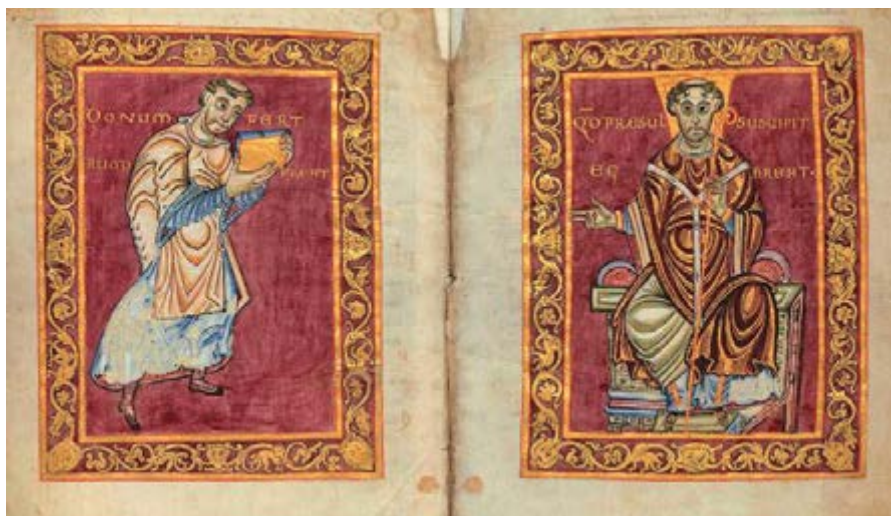 DONUM FERT
RUOD PREHT
QD PRÆSUL SUSCIPIT
EG BREHT·